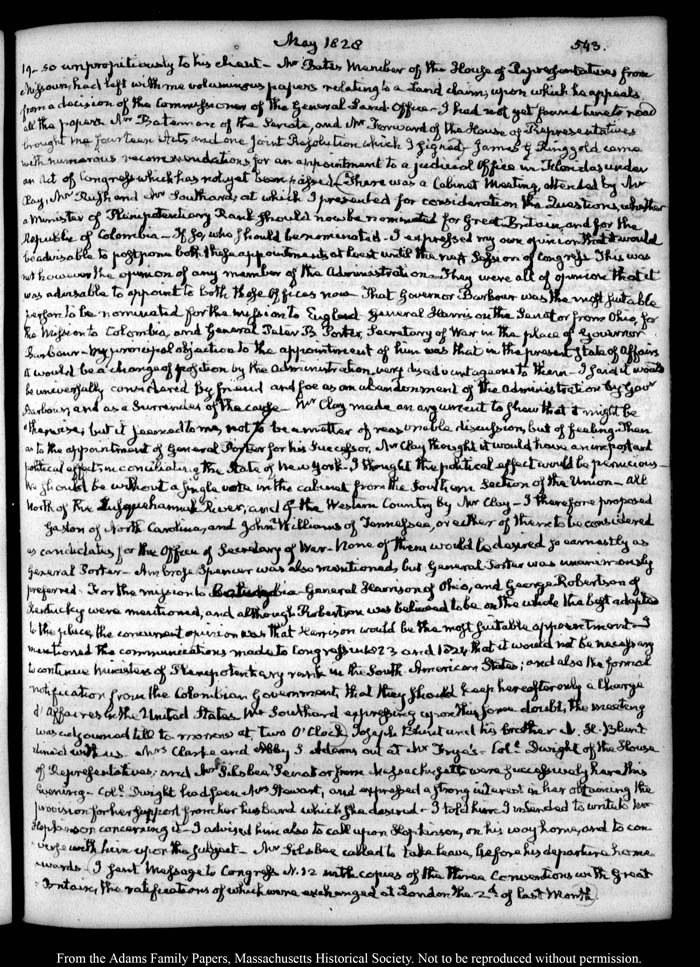 May 1828
543.
19- so unpropitiously to his client- Mr Bates Member of the House of Representatives from
Missouri, had left with me voluminous papers relating to a Land claim, upon which he appeals
from a decision of the Commissioner of the General Land Office- I had not yet found time to read
all the papers. Mr Bateman of the Senate, and Mr Forward of the House of Representatives
brought me fourteen Acts and one Joint Resolution which I signed- James G Ringgold came
with numerous recommendations for an appointment to a judicial Office in Florida under
an Act of Congress which has not yet been passed- There was a Cabinet Meeting, attended by Mr
Clay, Mr Rush and Mr Southard, at which I presented for consideration the Questions, whether
a Minister of Plenipotentiary Rank should now be nominated for Great-Britain, and for the
Republic of Colombia- If so, who should be nominated. I expressed my own opinion that it would
be advisable to postpone both these appointments at least until the next Session of Congress. This was
not however the opinion of any member of the Administration- They were all of opinion that it
was advisable to appoint to both those Offices now- That Governor Barbour was the most suitable
person to be nominated for the mission to England General Harrison the Senator from Ohio, for
the Mission to Colombia, and General Peter B Porter, Secretary of War in the place of Governor
Barbour- My principal objection to the appointment of him was that in the present State of Affairs
it would be a change of position by the Administration, very disadvantageous to them- I said it would
be universally considered by friend and foe as an abandonment of the Administration by Govr
Barbour, and as a Surrender of the cause- Mr Clay made an argument to show that it might be
otherwise; but it seemed to me, not to be a matter of reasonable discussion, but of feeling. Then
as to the appointment of General Porter for his Successor, Mr Clay thought it would have an important
political effect, in conciliating the State of New York- I thought the political effect would be pernicious-
We should be without a single vote in the cabinet from the Southern Section of the Union- all
North of the Susquehannah River, and of the Western Country by Mr Clay- I therefore proposed
Gaston of North Carolina, and John Williams of Tennessee, or either of them to be considered
as candidates for the Office of Secretary of War- None of them would be desired so earnestly as
General Porter- Ambrose Spencer was also mentioned, but General Porter was unanimously
preferred. For the mission to General Harrison of Ohio, and George Robertson of
Kentucky were mentioned, and although Robertson was believed to be on the whole the best adapted
to the place, the concurrent opinion was that Harrison would be the most suitable appointment- I
mentioned the communications made to Congress in 1823 and 1824 that it would not be necessary
to continue Ministers of Plenipotentiary rank in the South American States; and also the formal
notification from the Colombian Government, that they should keep hereafter only a Charge
d'Affaires in the United States. Mr Southard expressing upon this some doubt, the meeting
was adjourned till to morrow at two O'Clock. Joseph Blunt and his brother N. Blunt
dined with us. Mrs Clarke and Abby S Adams out at Mr Frye's- Colo. Dwight of the House
of Representatives, and Mr Silsbee Senator from Massachusetts were successively here this
Evening- Colo. Dwight had seen Mrs Stewart, and expressed a strong interest in her obtaining the
provision for her support from her husband which she desired- I told him I intended to write to Mr
Hopkinson concerning it- I advised him also to call upon Hopkinson, on his way home, and to con-
verse with him upon the subject- Mr Silsbee called to take leave, before his departure home-
wards- I sent Message to Congress N. 12 with copies of the three Conventions with Great
Britain, the ratifications of which were exchanged at London the 2d of last Month.
From the Adams Family Papers, Massachusetts Historical Society. Not to be reproduced without permission.